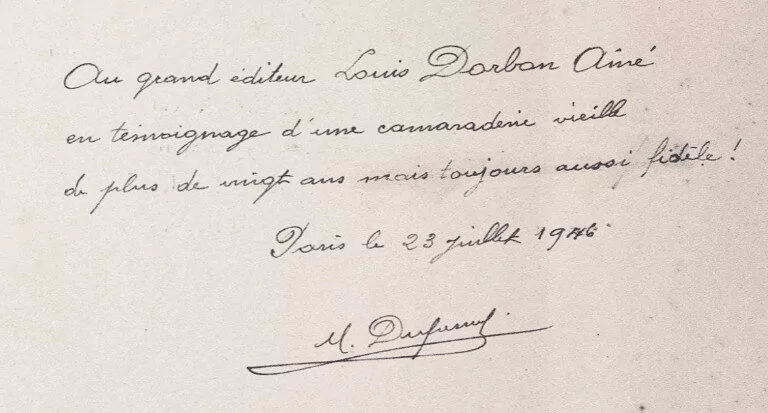 Au grand éditeur Louis Dorbon Aîné
en témoignage d'une camaraderie vieille
de plus de vingt ans mais toujours aussi fidèle !
Paris le 23 juillet 1946
M.